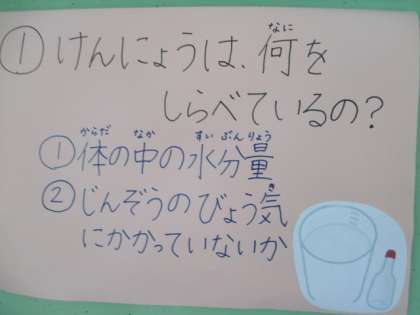 ① けんにょうは、何を
なに
しらべているの?
① 体の中の水分量
からだ なか すいぶんりょう
② じんぞうのびょう気
き
にかかっていないか